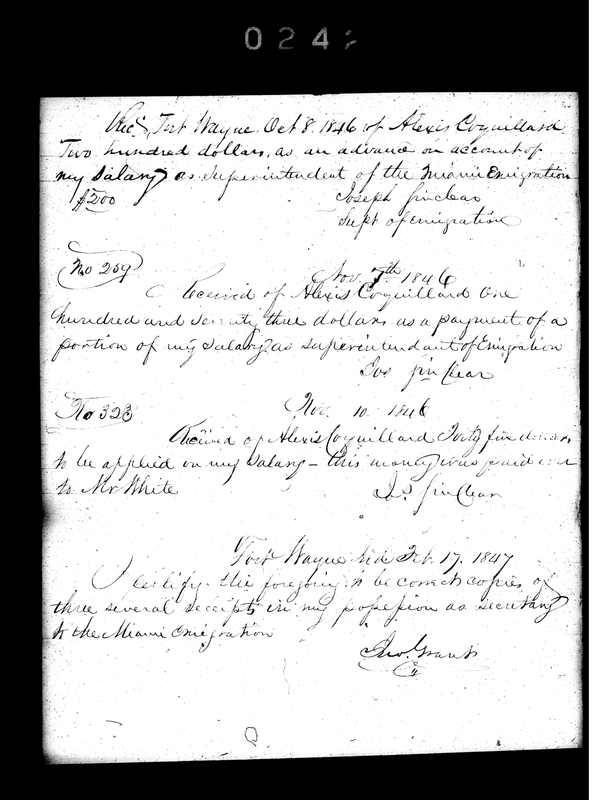 024
Rec'd, Fort Wayne Oct 8. 1846 of Alexis Coquillard
Two hundred dollars, as an advance on account of
my Salary as Superintendent of the Miami Emigration
$200
Joseph Sinclear
Supt of emigration
No 259
Nov. 7th 1846
Received of Alexis Coquillard One
hundred and seventy three dollars as a payment of a
portion of my Salary as Superintendant of Emigration
Jos Sinclear
No 323
Nov. 10 1846
Received of Alexis Coquillard Forty five dollars
to be applied on my Salary – this money was paid over
to Mr White
Jos Sinclear
Fort Wayne Ind Feb. 17. 1847
I certify the foregoing to be correct copies of
three several receipts in my possession as secretary
to the Miami Emigration
Jno. Grant